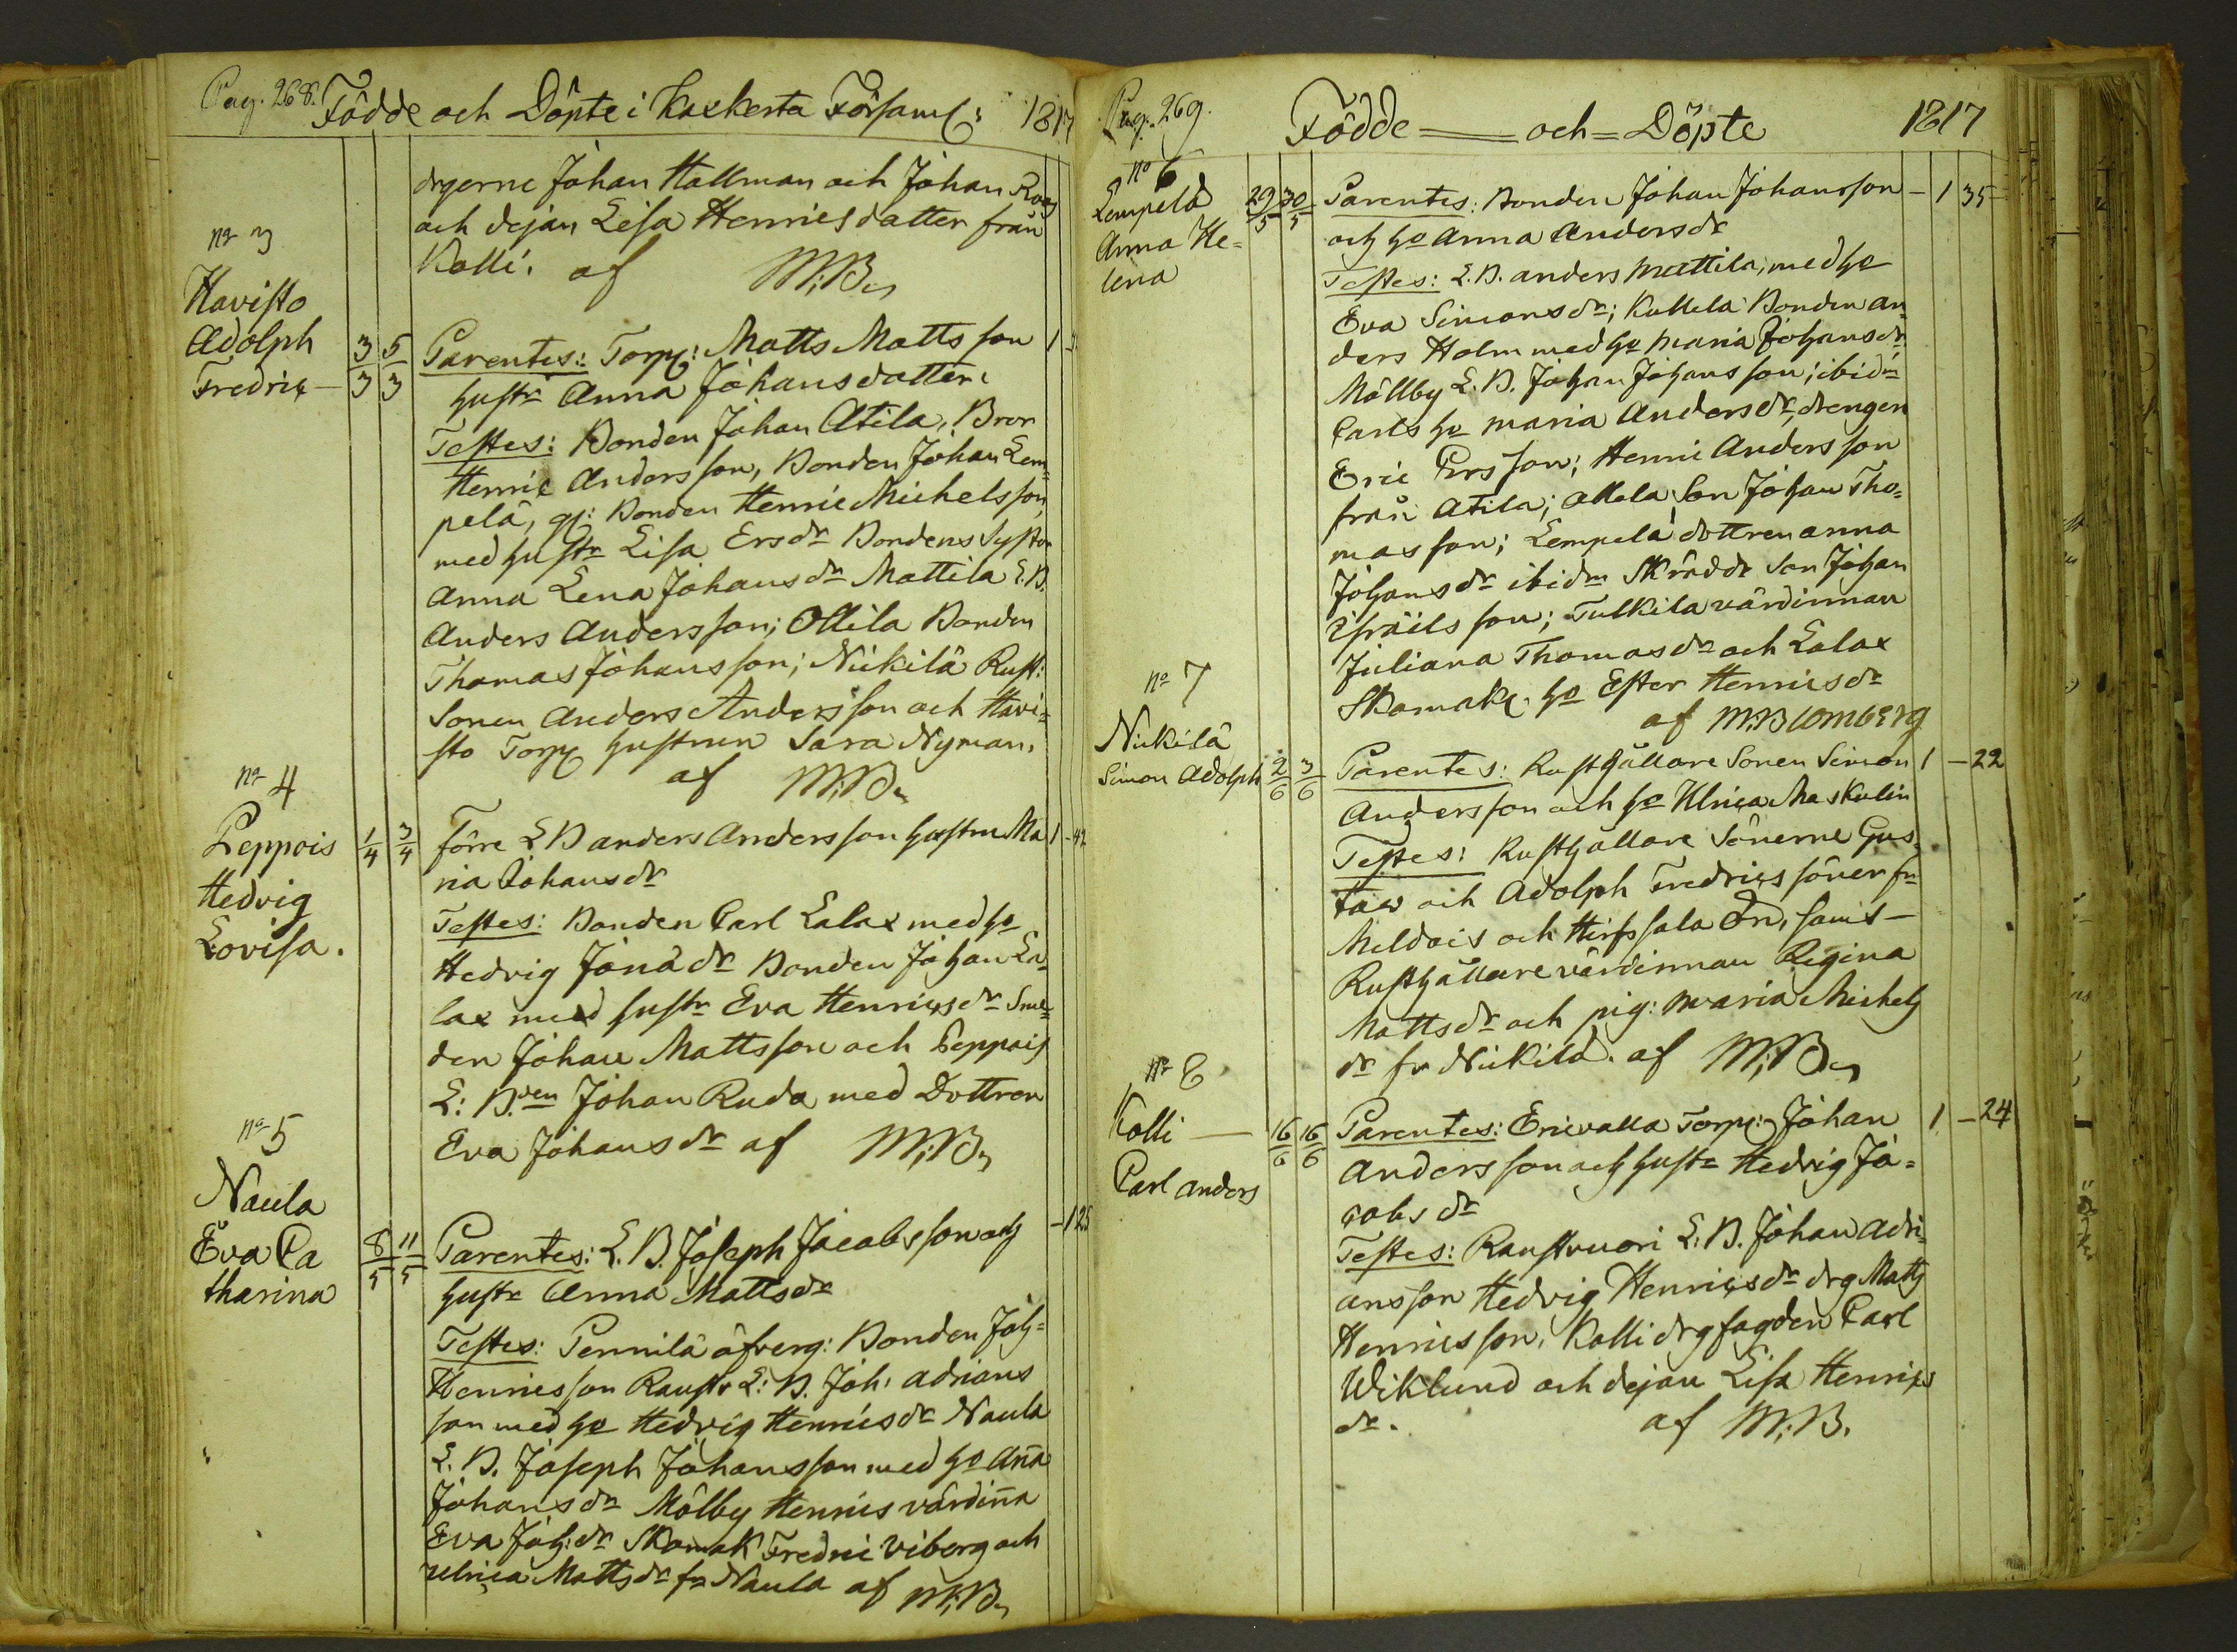 Pag. 268. Födde och Döpte i Kaxkerta Församl: 1817
drgerne Johan Hallman och Johan Roos
och dejan Lisa Henricsdatter från
Kolli. af M:B
No 3
Havisto
Adolph
Fredric — 3/3 5/3
Parentes: Torp: Matts Matts son 1
hustr Anna Johansdatter.
Testes: Bonden Johan Atila, Bror
Henric Anders son, Bonden Johan Lem=
pelä, gl: Bonden Henric Michels son,
med hustr Lisa Ersdr Bondens Syster
Anna Lena Johansdr Mattila L.B.
Anders Anders son; Ollila Bonden
Thomas Johans son; Niikilä Rust:
Sonen Anders Anders son och Havi=
sto Torp hustrun Sara Nyman.
af M:B
No 4
Peppois
Hedvig
Lovisa. 1/4 3/4
förre L B anders Anders son hustru Ma 1 - 42
ria Johansdr
Testes: Bonden Carl Lalax med ho
Hedvig Jonädr Bonden Johan La=
lax med hustr Eva Henricsdr Sme=
den Johan Matts son och Peppois
L: B.den Johan Ruda med Dottren
Eva Johansdr af M:B
No 5
Naula
Eva Ca
tharina 8/5 11/5
Parentes: L.B. Joseph Jacobs son och - 1 25
hustr Anna Mattsdr
Testes: Pennilä öfverg: Bonden Joh=
Henrics son Raustv L: B. Joh: adrians
son med ho Hedvig Henricsdr Naula
L. B. Joseph Johans son med ho Aña
Johansdr Mölby Henrics värdiña
Eva Joh: dr Skomak Fredric Viberg och
Ulrica Mattsdr fr Naula af M:B
Pag. 269. Födde — och = Döpte 1817
No 6
Lempelä
Anna He=
lena 29/5 30/5
Parentes: Bonden Johan Johansson - 1 35
och ho Anna Andersdr
Testes: L.B. anders Mattila, med ho
Eva Simonsdr; Kullela Bonden an
ders Holm med ho Maria Johansdr
Möllby L. B. Johan Johans son; ibidm
Carls ho Maria Andersdr, drengen
Eric Ers son; Henric Anders son
från Atila; Ollila Son Johan Tho=
mas son; Lempelä dottren anna
Johansdr ibidm Skrädd Son Johan
Isräils son; Tulkila värdinnan
Juliana Thomasdr och Lalax
Skomak. ho Ester Henricsdr
af M:Blomberg
No 7
Niikilä
Simon Adolph 2/6 3/6
Parentes: Rusthållare Sonen Simon 1 — 22
Anders son och ho Ulrica Maskulin
Testes: Rusthållare Sönerne Gus=
taw och Adolph Fredrics söner fr
Meldois och Hirfssala Ön, samt —
Rusthållare värdinnan Regina
Mattsdr och pig: Maria Michels
dr fr Niikilä. af M:B
No 8
Kolli —
Carl anders 16/6 16/6
Parentes: Ericvalla Torp: Johan 1 — 24
Anders son och hustr Hedvig Ja=
cobs dr
Testes: Raustvuori L: B. Johan Adri=
ans son Hedvig Henricsdr drg Matts
Henrics son, Kolli drg fogden Carl
Wiklund och dejan Lisa Henrics
dr. af M:B.